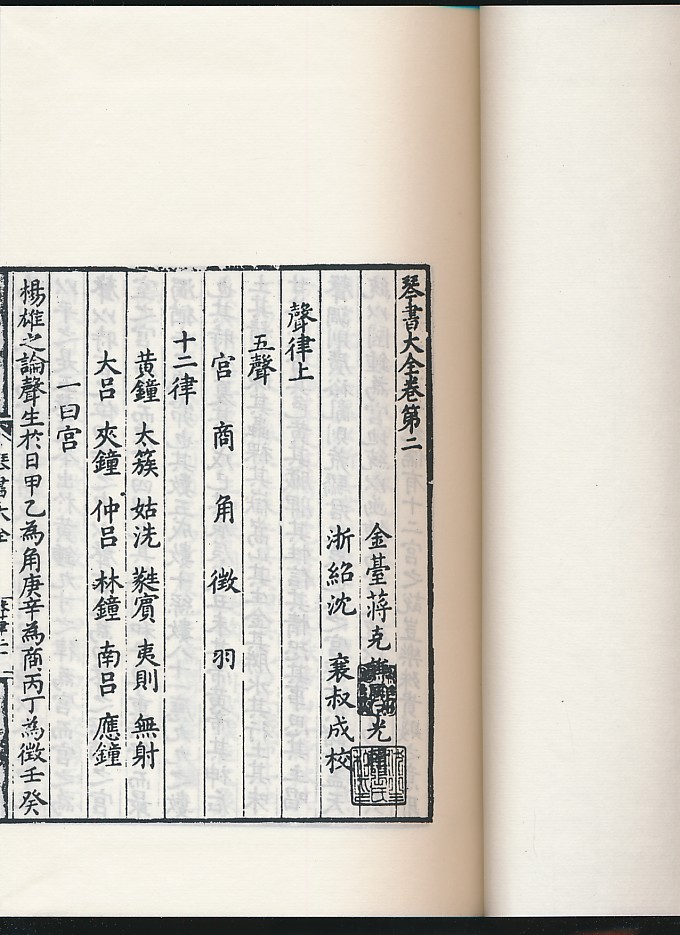 琴書大全卷第二
金臺蔣克 光
浙紹沈 襄叔成校
聲律上
五聲
宮 商 角 徵 羽
十二律
黃鐘 太簇 姑洗 蕤賓 夷則 無射
大吕 夾鐘 仲吕 林鐘 南吕 應鐘
一曰宫
楊雄之論聲生於日甲乙為角庚辛為商丙丁為徵壬癸
琴書大全